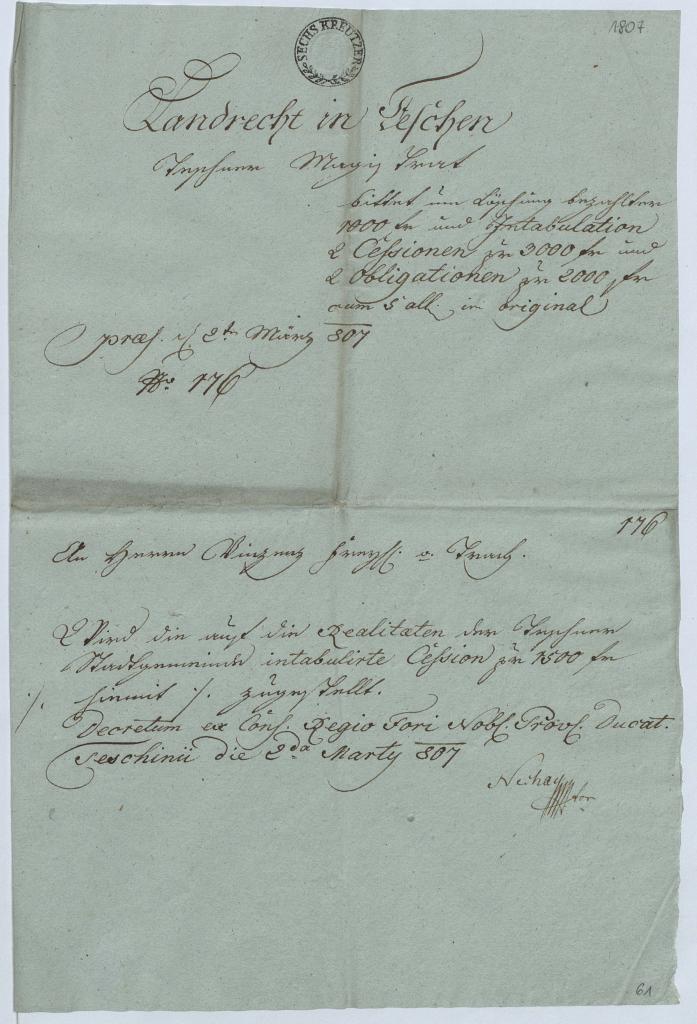 1807
SECHS KREUTZER
Landrecht in Teschen
Teschner Magistrat
bittet um Löschung bezahlter
1000 fr und Intabulation
2 Cessionen zu 3000 fr und
2 Obligationen zu 2000 fr
cum 5 all. in original
præs. 2t März 807
No. 176
176
An Herrn Vinzenz Freyh. v. Trach.
Wird die auf die Realitäten der Teschner
Stadtgemeinde intabulirte Cession zu 1500 fr
·/. hiemit ·/. zugestellt.
Decretum ex Cons. Regio Fori Nobl. Prov. Ducat.
Teschinii die 2da Marty 807
Nechay
61